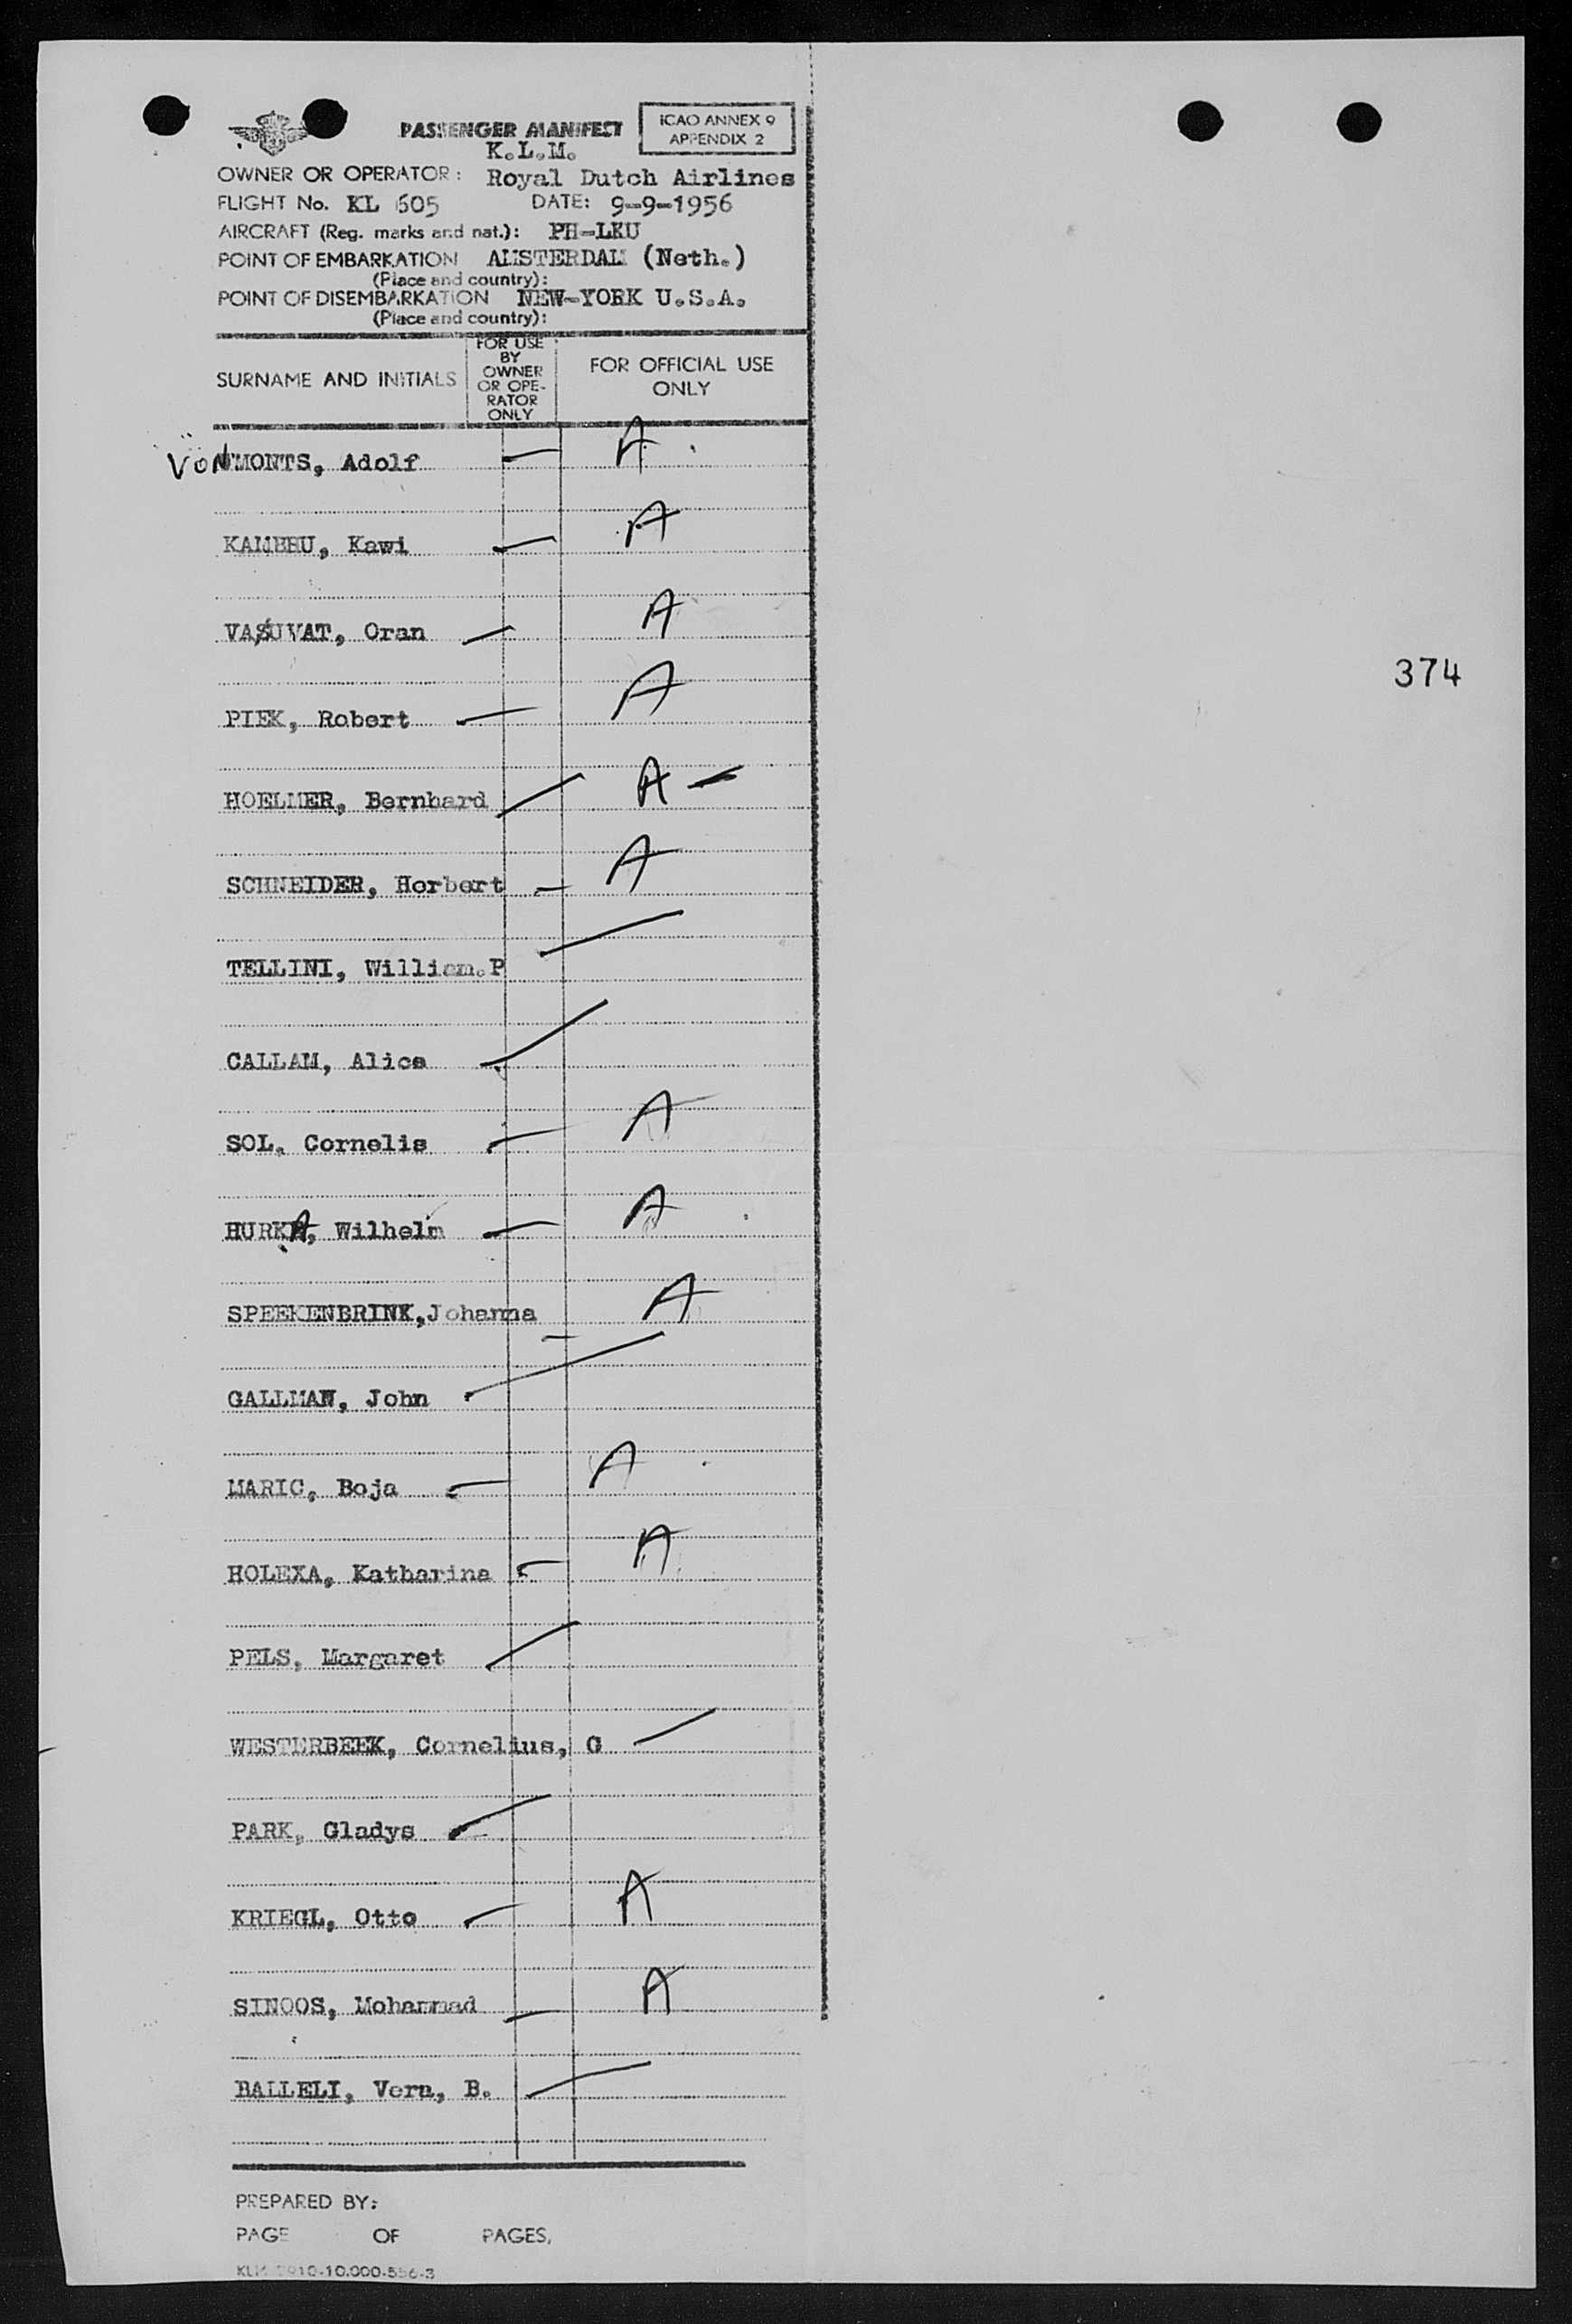 PASSENGER MANIFEST
ICAO ANNEX 9
APPENDIX 2
K.L.M.
OWNER OR OPERATOR: Royal Dutch Airlines
FLIGHT No. KL 605 DATE: 9-9-1956
AIRCRAFT (Reg. marks and nat.): PH-LKU
POINT OF EMBARKATION AMSTERDAM (Neth.)
(Place and country):
POINT OF DISEMBARKATION NEW-YORK U.S.A.
(Place and country):
SURNAME AND INITIALS
FOR USE
BY
OWNER
OR OPE-
RATOR
ONLY
FOR OFFICIAL USE
ONLY
VON MONTS, Adolf A
KAMBHU, Kawi A
VASUVAT, Oran A
374
PIEK, Robert A
HOELMER, Bernhard A
SCHNEIDER, Herbert A
TELLINI, William.P
CALLAM, Alice
SOL, Cornelis A
HURKA, Wilhelm A
SPEEKENBRINK,Johanna A
GALLMAN, John
MARIC, Boja A
HOLEXA, Katharina A
PELS, Margaret
WESTERBEEK, Cornelius, G
PARK, Gladys
KRIEGL, Otto A
SINOOS, Mohammad A
BALLELI, Vern, B.
PREPARED BY:
PAGE OF PAGES,